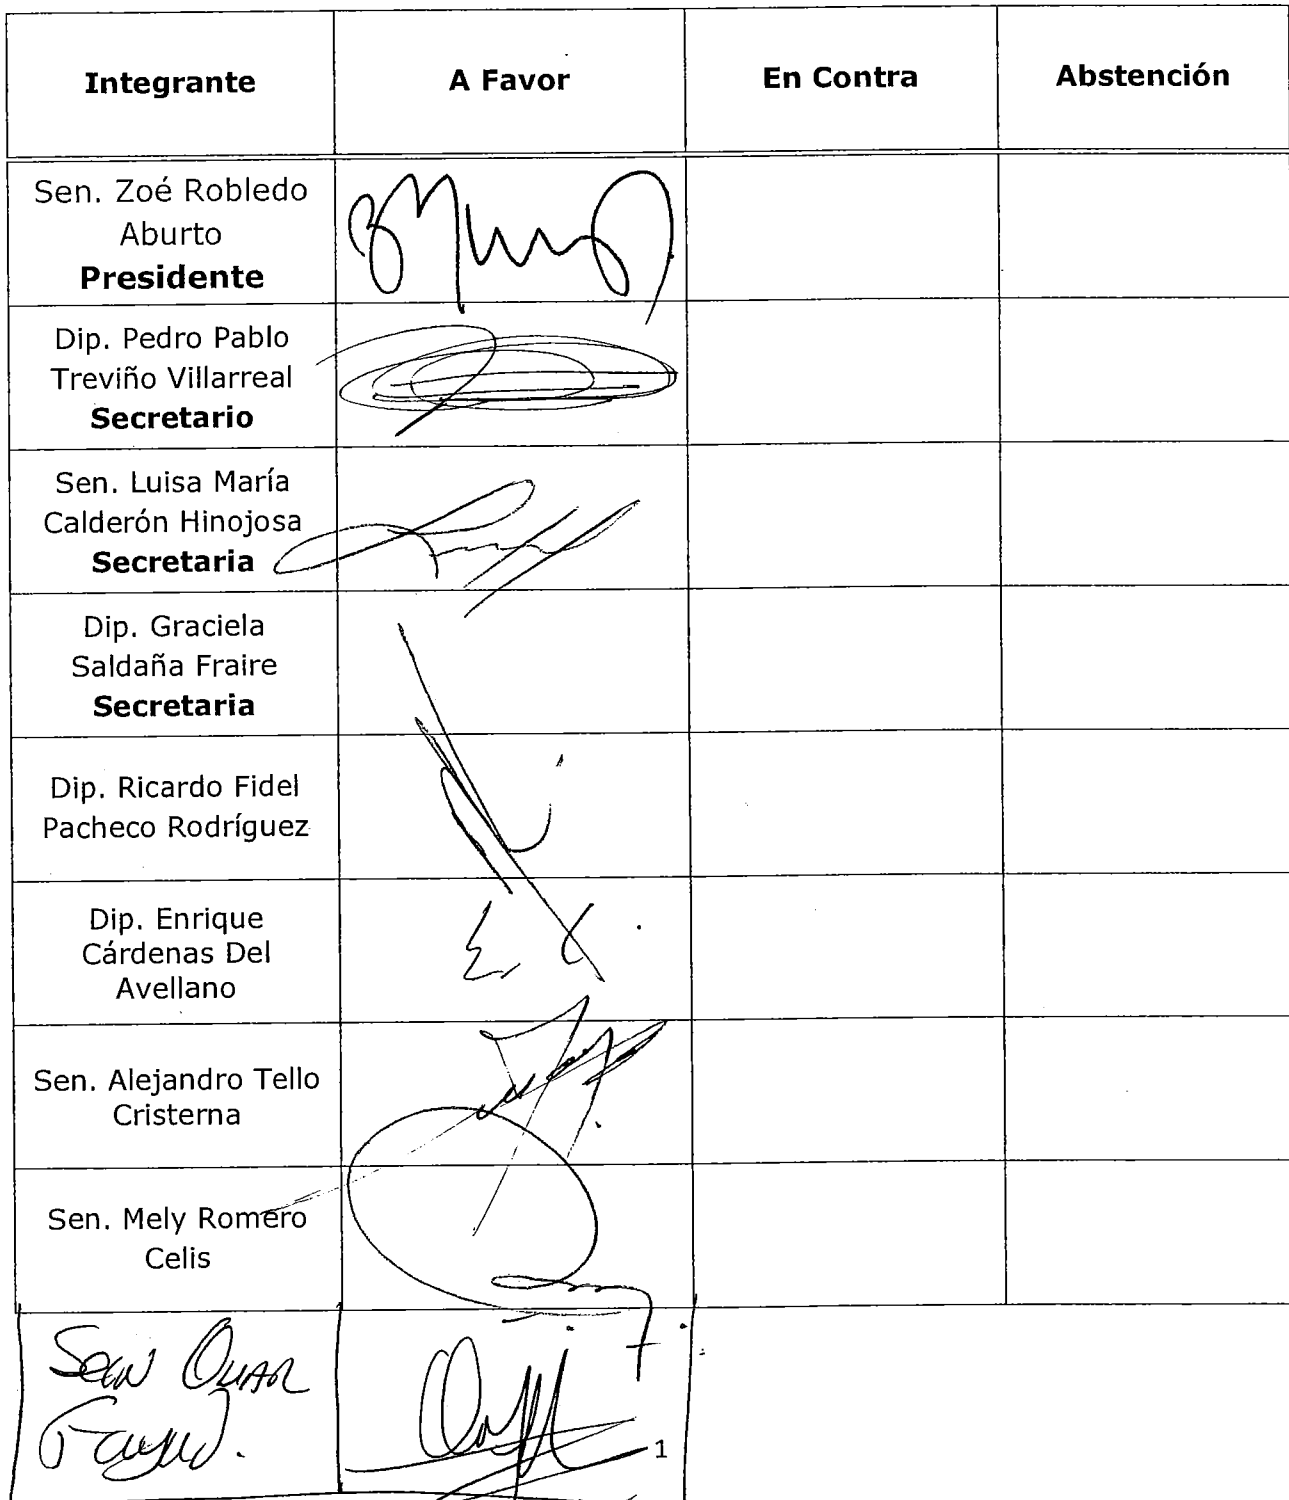 Integrante A Favor En Contra Abstención
Sen. Zoé Robledo
Aburto
Presidente
Dip. Pedro Pablo
Treviño Villarreal
Secretario
Sen. Luisa María
Calderón Hinojosa
Secretaria
Dip. Graciela
Saldaña Fraire
Secretaria
Dip. Ricardo Fidel
Pacheco Rodríguez
Dip. Enrique
Cárdenas Del
Avellano
Sen. Alejandro Tello
Cristerna
Sen. Mely Romero
Celis
Sen Omar
Fayad.
1